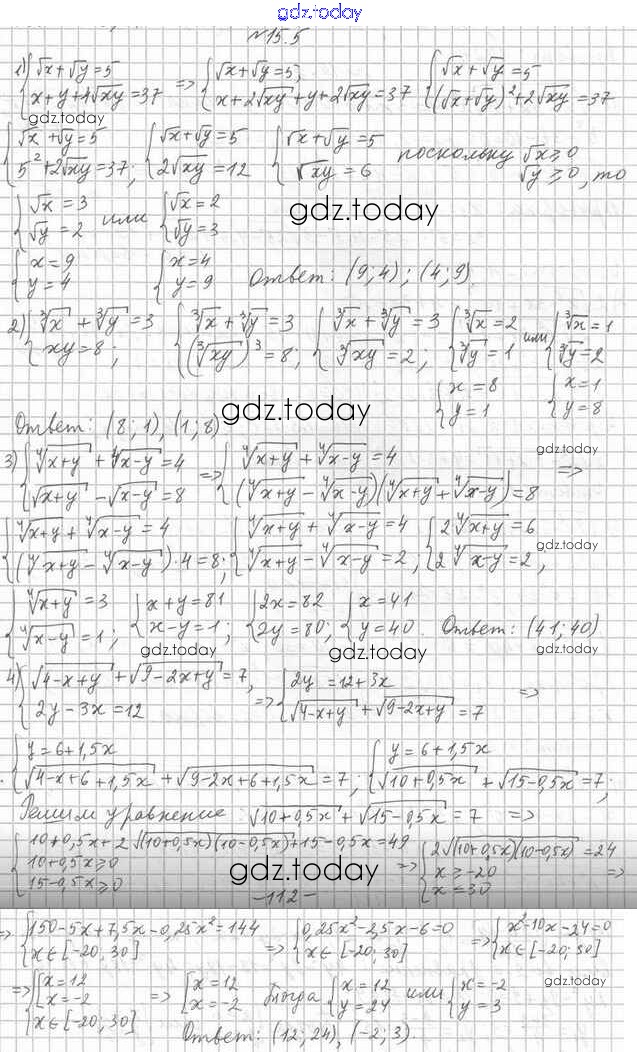 gdz.today
№15.5
1) {√x+√y=5 {x+y+4√xy=37 => {√x+√y=5, {x+2√xy+y+2√xy=37 {√x+√y=5 {(√x+√y)²+2√xy=37
gdz.today
{√x+√y=5 {5²+2√xy=37; {√x+√y=5 {2√xy=12 {√x+√y=5 {√xy=6 поскольку √x≥0 √y≥0, то
{√x=3 {√y=2 или {√x=2 {√y=3
gdz.today
{x=9 {y=4 {x=4 {y=9 Ответ: (9;4); (4;9)
2) {∛x+∛y=3 {xy=8; {∛x+∛y=3 {(∛xy)³=8; {∛x+∛y=3 {∛xy=2; {∛x=2 {∛y=1 или {∛x=1 {∛y=2
{x=8 {y=1 {x=1 {y=8
gdz.today
Ответ: (8;1), (1;8)
gdz.today
3) {∜x+y + ∜x-y=4 {√x+y - √x-y=8 => {∜x+y + ∜x-y=4 {(∜x+y - ∜x-y)(∜x+y + ∜x-y)=8 =>
{∜x+y + ∜x-y=4 {(∜x+y - ∜x-y)·4=8; {∜x+y + ∜x-y=4 {∜x+y - ∜x-y=2, {2∜x+y=6 {2∜x-y=2,
gdz.today
{∜x+y=3 {∜x-y=1; {x+y=81 {x-y=1; {2x=82 {2y=80; {x=41 {y=40. Ответ: (41;40)
gdz.today gdz.today gdz.today
4) {√4-x+y + √9-2x+y=7, {2y-3x=12 => {2y=12+3x {√4-x+y + √9-2x+y=7 =>
{y=6+1,5x {√4-x+6+1,5x + √9-2x+6+1,5x=7; {y=6+1,5x {√10+0,5x + √15-0,5x=7;
Решим уравнение: √10+0,5x + √15-0,5x=7 =>
{10+0,5x+2√(10+0,5x)(10-0,5x)+15-0,5x=49 {10+0,5x≥0 {15-0,5x≥0 => {2√(10+0,5x)(10-0,5x)=24 {x≥-20 {x≤30 =>
gdz.today
-112-
=> {150-5x+7,5x-0,25x²=144 {x∈[-20;30] => {0,25x²-2,5x-6=0 {x∈[-20;30] => {x²-10x-24=0 {x∈[-20;30]
=> {[x=12 [x=-2 {x∈[-20;30] => [x=12 [x=-2 Тогда {x=12 {y=24 или {x=-2 {y=3
Ответ: (12;24), (-2;3).